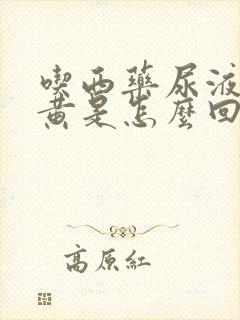 喫西藥尿液
黃是怎麼回
高原紅